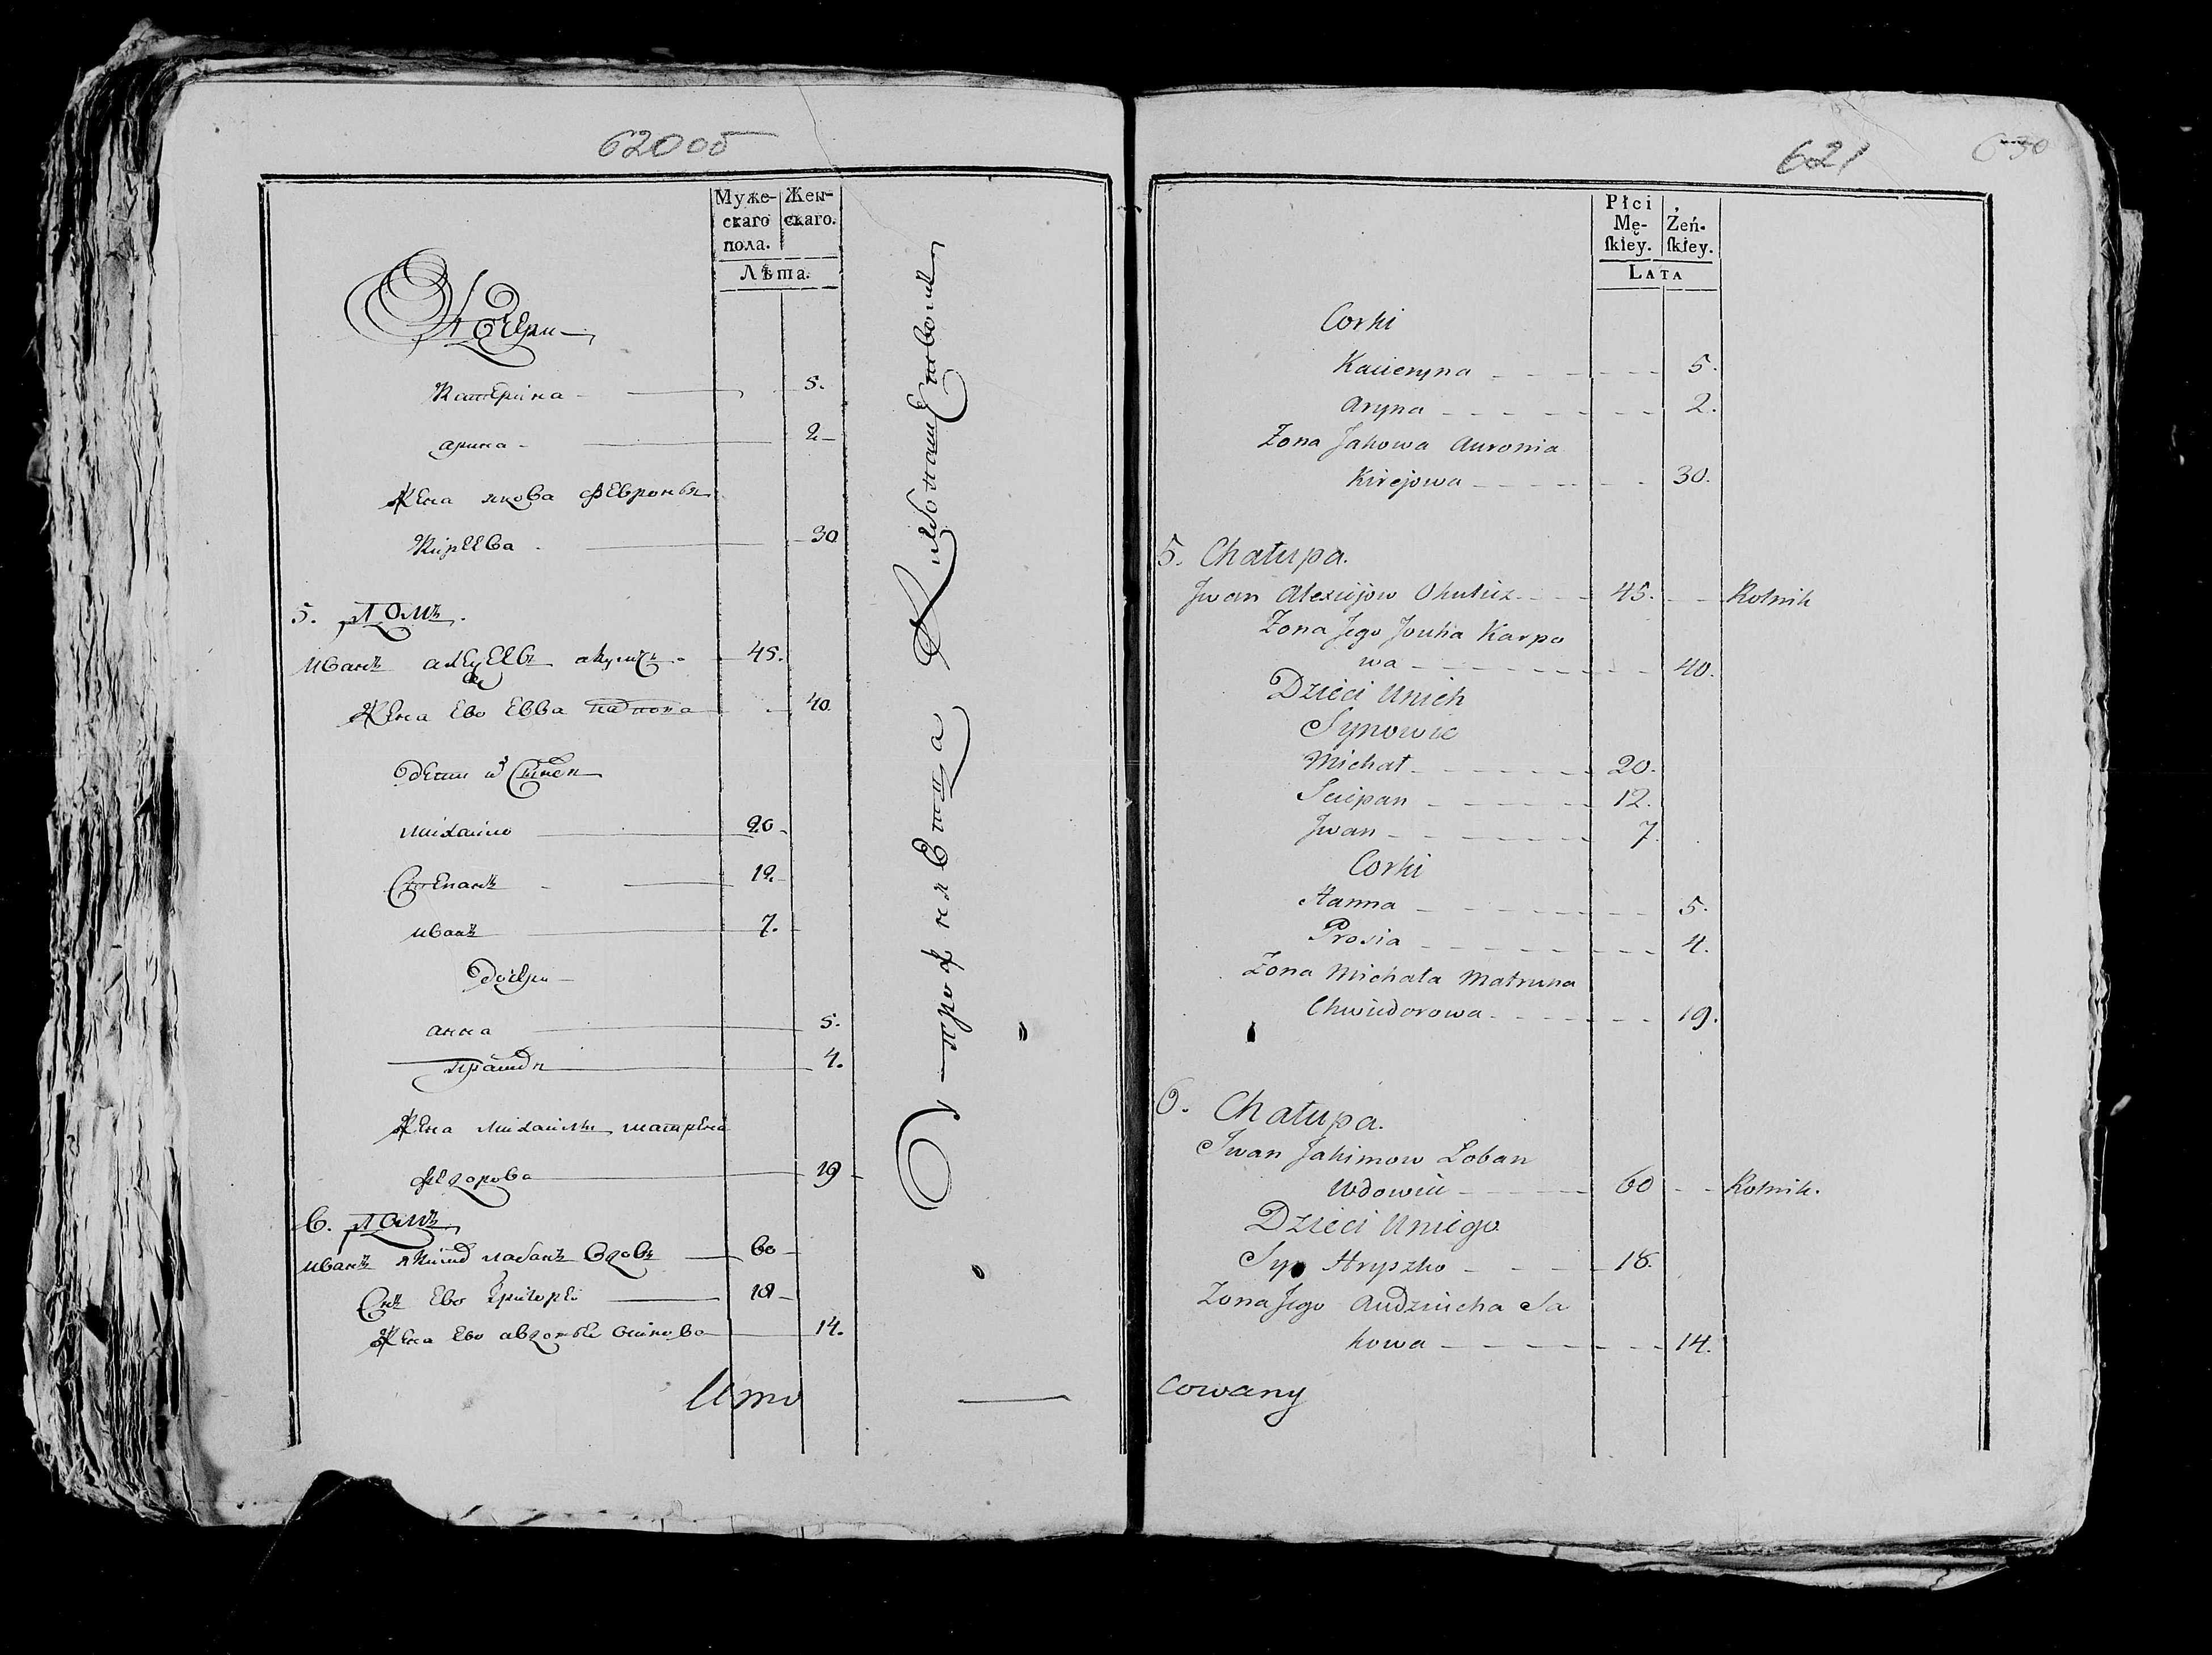 620 об
Муже-
скаго
пола.
Жен-
скаго.
Лѣта.
Дочери
Катерина 5.
арина 2
Жена якова Февронья
Киреева 30
5. Домъ.
иванъ алексеевъ акуличъ 45.
Жена Ево Евва 40.
дети и Сынове
михаило 20
Степанъ 12.
иванъ 7.
дочери
анна 5.
4.
Жена михаилы матрена
федорова 19
6. Домъ
иванъ лабанъ вдовъ 60
Снъ Ево Григорей 18
Жена Ево авдотья 14.
621
630
Płci
Mę-
ſkiey.
Żeń-
ſkiey.
LATA
Corki
Kacieryna 5.
Aryna 2.
Zona Jakowa Auronia
Kirejowa 30.
5. Chałupa.
Jwan Alexiejow Okulicz 45. Rolnik
Zona Jego Jouka Karpo
wa 40.
Dzieci Unich
Synowie
Michał 20.
Sciepan 12.
Jwan 7.
Corki
Hanna 5.
Prosia 4.
Zona Michała Matruna
Chwiedorowa 19.
6. Chałupa.
Jwan Jakimow Łoban
Wdowiec 60 Rolnik.
Dzieci Uniego
Syn Hryszko 18.
Zona Jego Audziucha Ja
kowa 14.
cowany